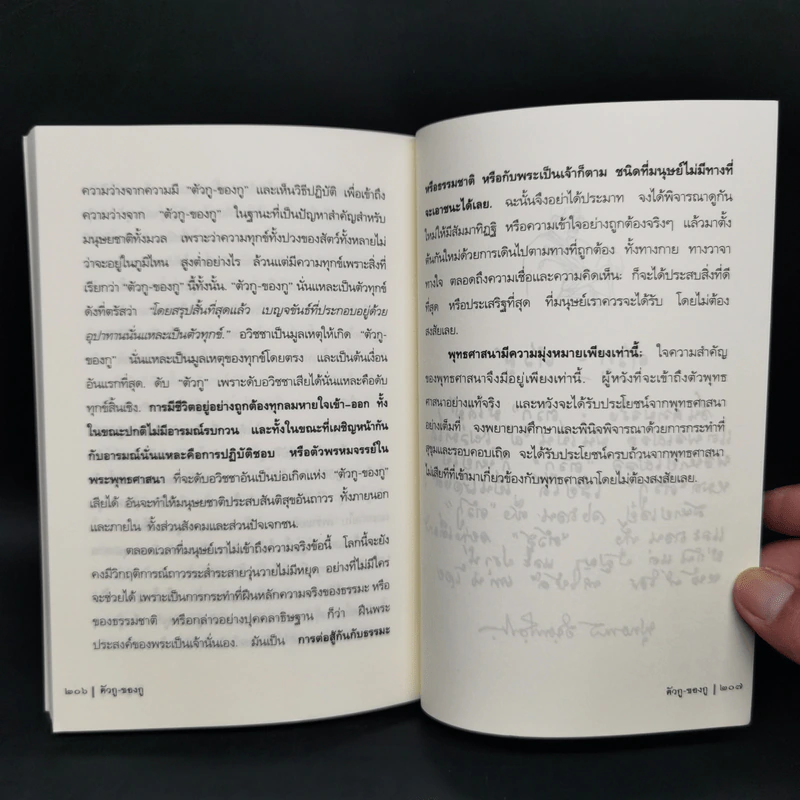 ความว่างจากความมี "ตัวกู-ของกู" และเห็นวิธีปฏิบัติ เพื่อเข้าถึง
ความว่างจาก "ตัวกู-ของกู" ในฐานะที่เป็นปัญหาสำคัญสำหรับ
มนุษยชาติทั้งมวล เพราะว่าความทุกข์ทั้งปวงของสัตว์ทั้งหลายไม่
ว่าจะอยู่ในภูมิไหน สูงต่ำอย่างไร ล้วนแต่มีความทุกข์เพราะสิ่งที่
เรียกว่า "ตัวกู-ของกู" นี้ทั้งนั้น. "ตัวกู-ของกู" นั่นแหละเป็นตัวทุกข์
ดังที่ตรัสว่า "โดยสรุปสิ้นที่สุดแล้ว เบญจขันธ์ที่ประกอบอยู่ด้วย
อุปาทานนั่นแหละเป็นตัวทุกข์." อวิชชาเป็นมูลเหตุให้เกิด "ตัวกู-
ของกู" นั่นแหละเป็นมูลเหตุของทุกข์โดยตรง และเป็นต้นเงื่อน
อันแรกที่สุด. ดับ "ตัวกู" เพราะดับอวิชชาเสียได้นั่นแหละคือดับ
ทุกข์สิ้นเชิง. การมีชีวิตอยู่อย่างถูกต้องทุกลมหายใจเข้า-ออก ทั้ง
ในขณะปกติไม่มีอารมณ์รบกวน และทั้งในขณะที่เผชิญหน้ากัน
กับอารมณ์นั่นแหละคือการปฏิบัติชอบ หรือตัวพรหมจรรย์ใน
พระพุทธศาสนา ที่จะดับอวิชชาอันเป็นบ่อเกิดแห่ง "ตัวกู-ของกู"
เสียได้ อันจะทำให้มนุษยชาติประสบสันติสุขอันถาวร ทั้งภายนอก
และภายใน ทั้งส่วนสังคมและส่วนปัจเจกชน.
ตลอดเวลาที่มนุษย์เราไม่เข้าถึงความจริงข้อนี้ โลกนี้จะยัง
คงมีวิกฤติการณ์ถาวรระส่ำระสายวุ่นวายไม่มีหยุด อย่างที่ไม่มีใคร
จะช่วยได้ เพราะเป็นการกระทำที่ฝืนหลักความจริงของธรรมะ หรือ
ของธรรมชาติ หรือกล่าวอย่างบุคคลาธิษฐาน ก็ว่า ฝืนพระ
ประสงค์ของพระเป็นเจ้านั่นเอง. มันเป็น การต่อสู้กันกับธรรมะ
๒๐๖ | ตัวกู-ของกู
หรือธรรมชาติ หรือกับพระเป็นเจ้าก็ตาม ชนิดที่มนุษย์ไม่มีทางที่
จะเอาชนะได้เลย. ฉะนั้นจึงอย่าได้ประมาท จงได้พิจารณาดูกัน
ใหม่ให้มีสัมมาทิฏฐิ หรือความเข้าใจอย่างถูกต้องจริงๆ แล้วมาตั้ง
ต้นกันใหม่ด้วยการเดินไปตามทางที่ถูกต้อง ทั้งทางกาย ทางวาจา
ทางใจ ตลอดถึงความเชื่อและความคิดเห็น: ก็จะได้ประสบสิ่งที่ดี
ที่สุด หรือประเสริฐที่สุด ที่มนุษย์เราควรจะได้รับ โดยไม่ต้อง
สงสัยเลย.
พุทธศาสนามีความมุ่งหมายเพียงเท่านี้: ใจความสำคัญ
ของพุทธศาสนาจึงมีอยู่เพียงเท่านี้. ผู้หวังที่จะเข้าถึงตัวพุทธ
ศาสนาอย่างแท้จริง และหวังจะได้รับประโยชน์จากพุทธศาสนา
อย่างเต็มที่ จงพยายามศึกษาและพินิจพิจารณาด้วยการกระทำที่
สุขุมและรอบคอบเถิด จะได้รับประโยชน์ครบถ้วนจากพุทธศาสนา
ไม่เสียทีที่เข้ามาเกี่ยวข้องกับพุทธศาสนาโดยไม่ต้องสงสัยเลย.
ตัวกู-ของกู | ๒๐๗